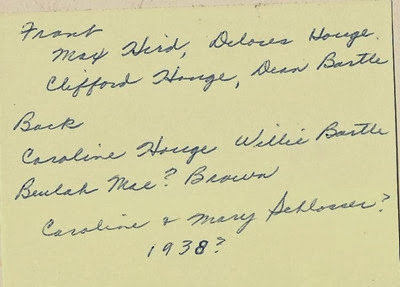 Front
Max Hird, Delores Houge.
Clifford Houge, Dean Bartle
Back
Caroline Houge Willie Bartle
Beulah Mae? Brown
Caroline & Mary Schlosser?
1938?